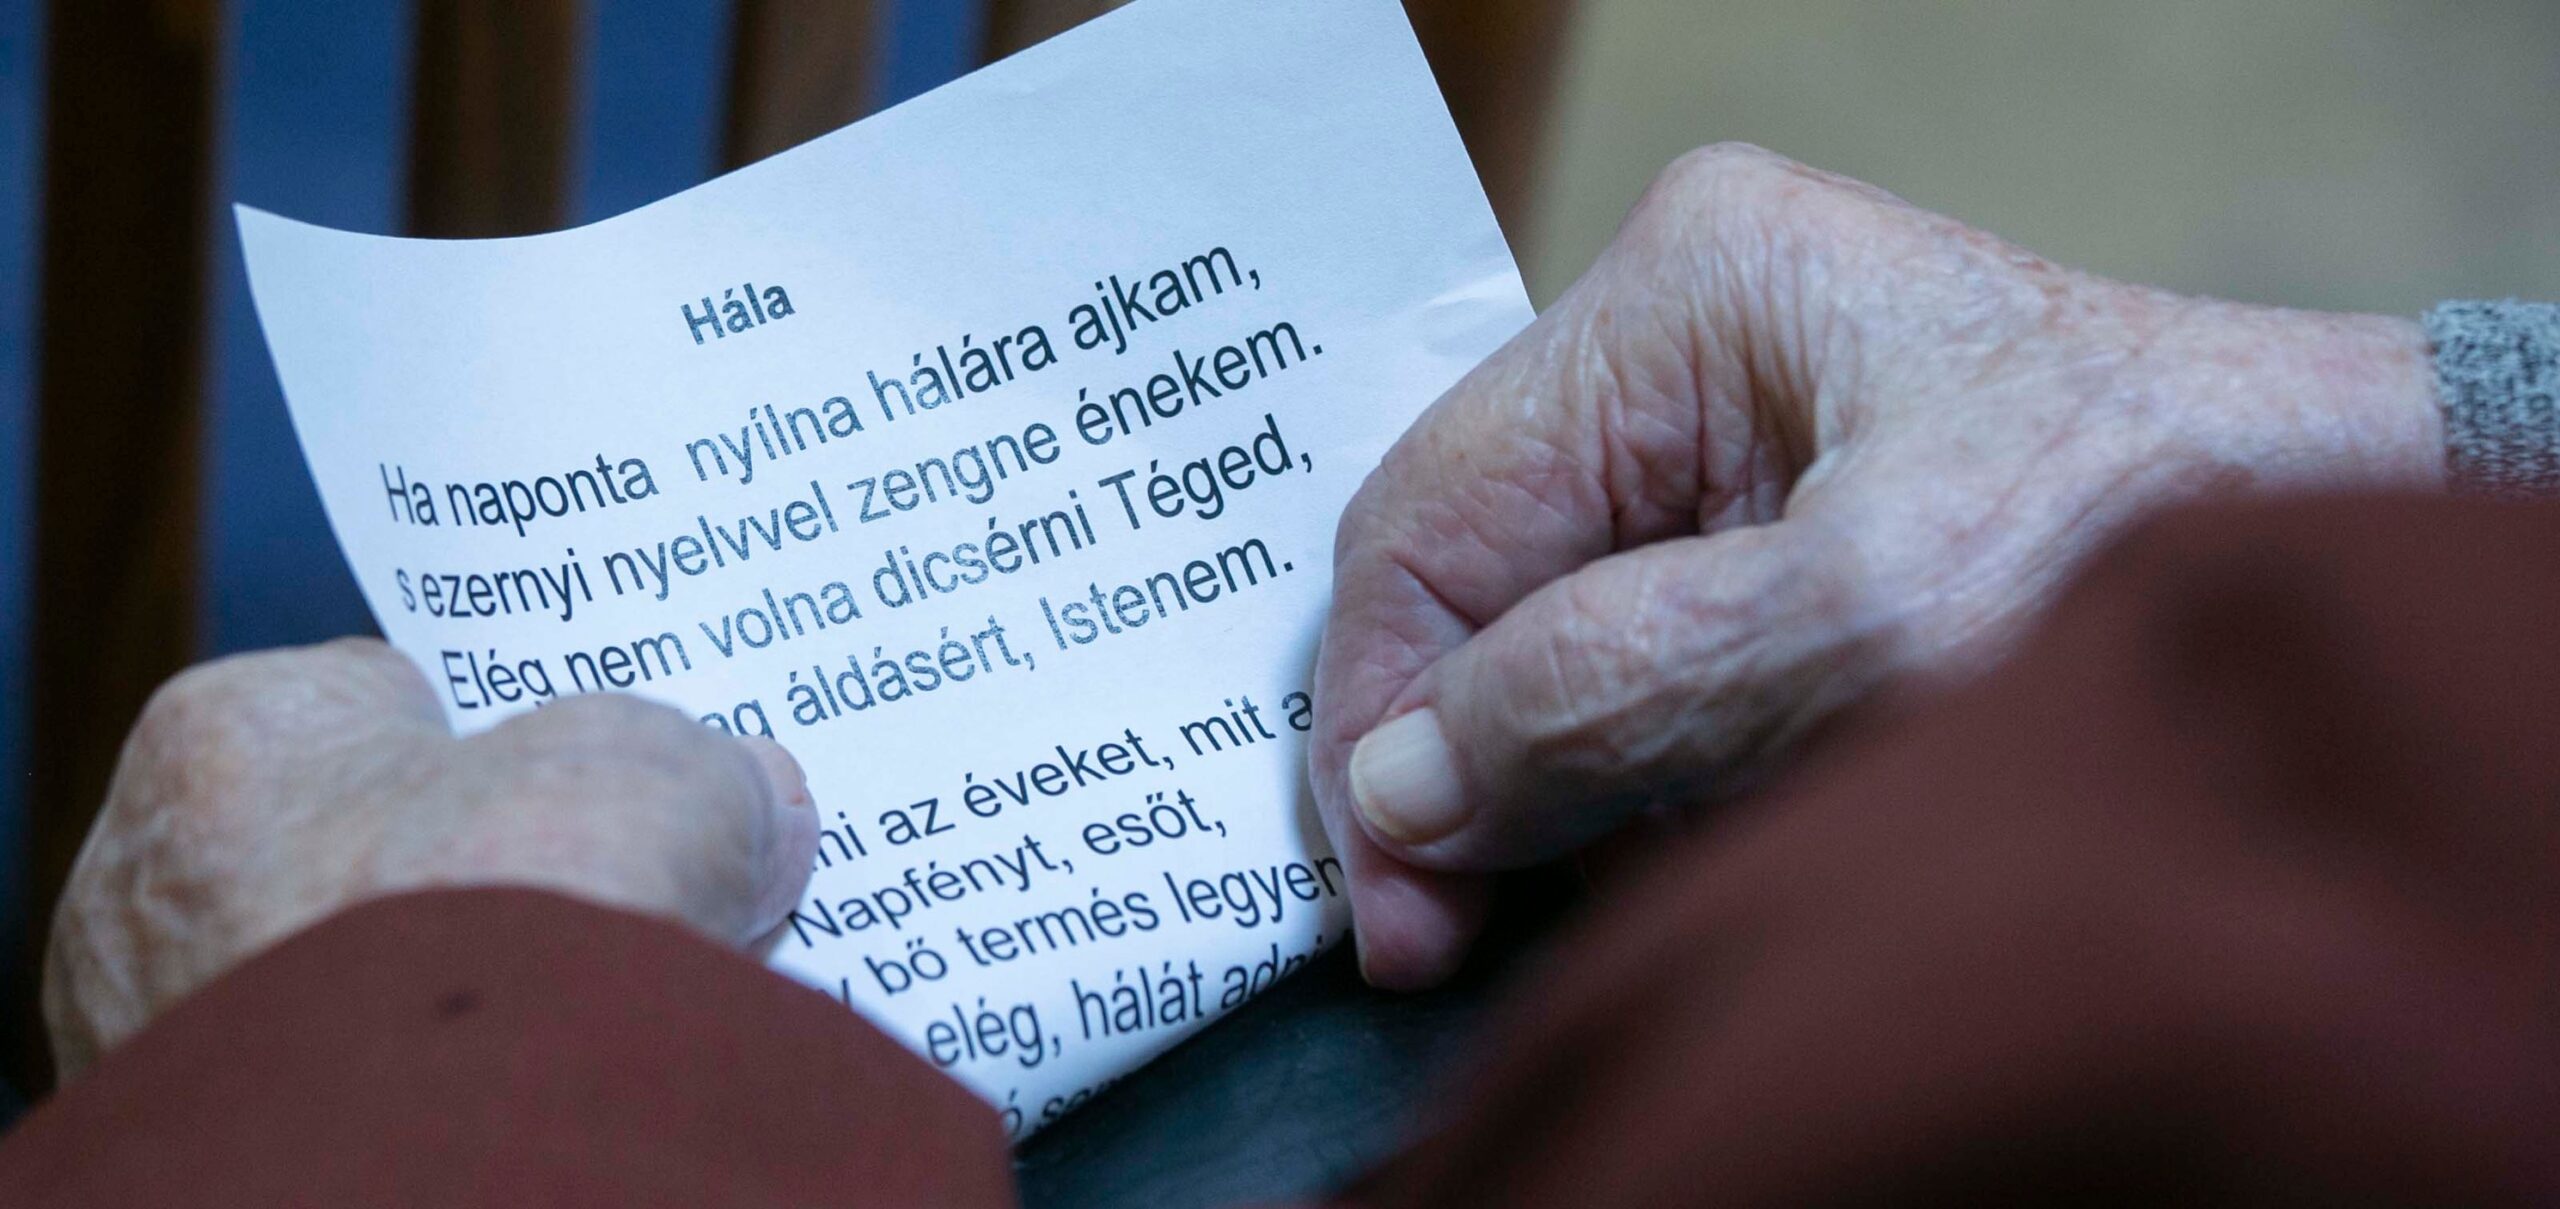 Hála
Ha naponta nyílna hálára ajkam,
s ezernyi nyelvvel zengne énekem.
Elég nem volna dicsérni Téged,
áldásért, Istenem.
az éveket, mit a
Napfényt, esőt,
bő termés legyen
elég, hálát adni